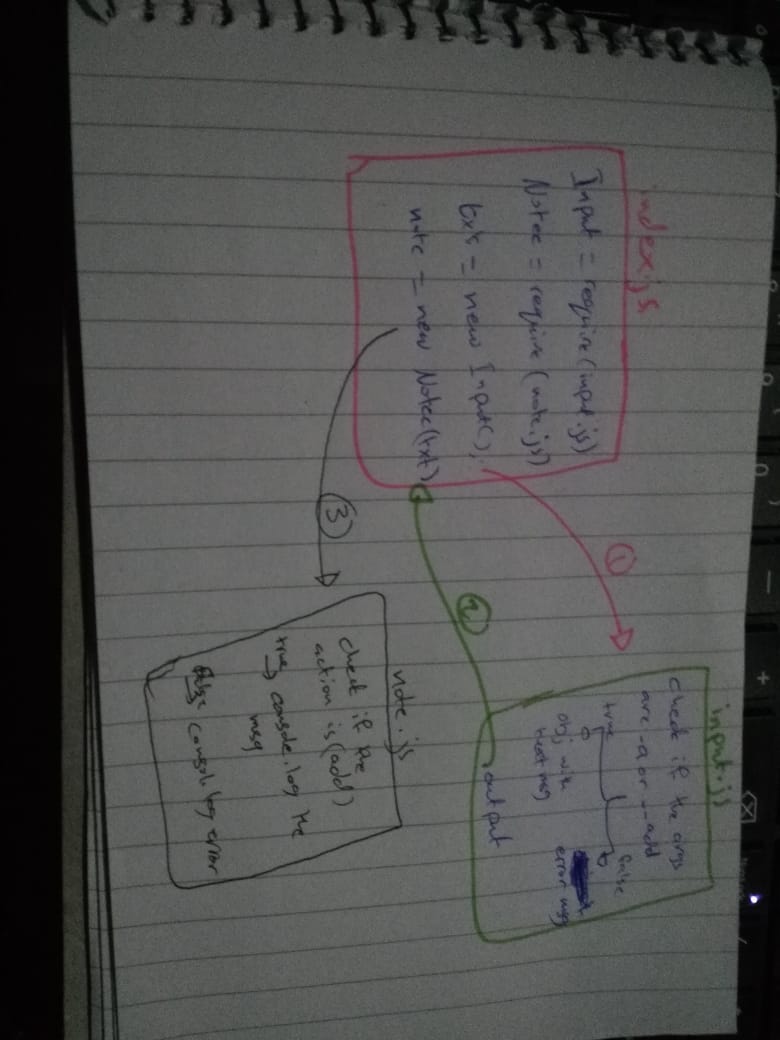 index.js
Input = require(input.js)
Notee = require(note.js)
txt = new Input();
note = new Notee(txt)
①
②
③
input.js
check if the args
are -a or --add
true false
obj with
text msg
error msg
output
note.js
check if the
action is (add)
true → console.log the
msg
false → consol log error